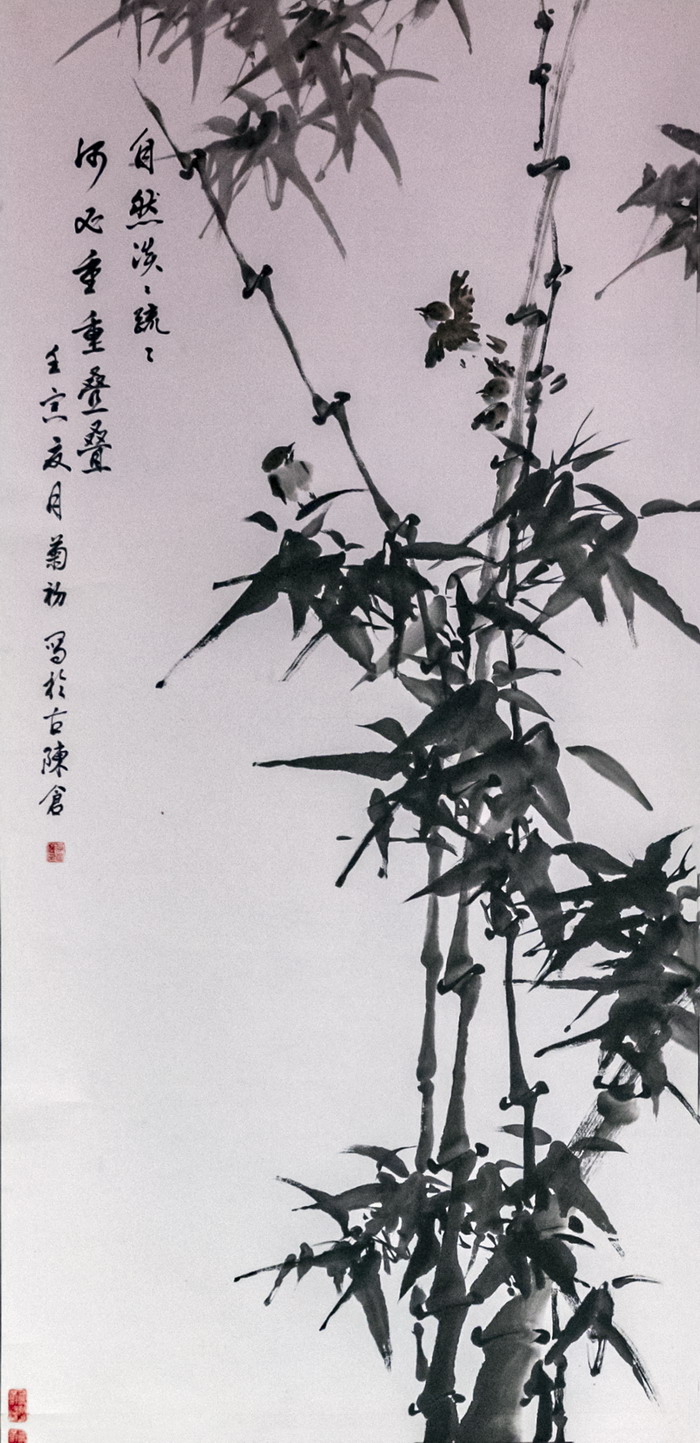 自然淡淡疏疏
何必重重叠叠
壬寅夏月菊初 写於古陳倉